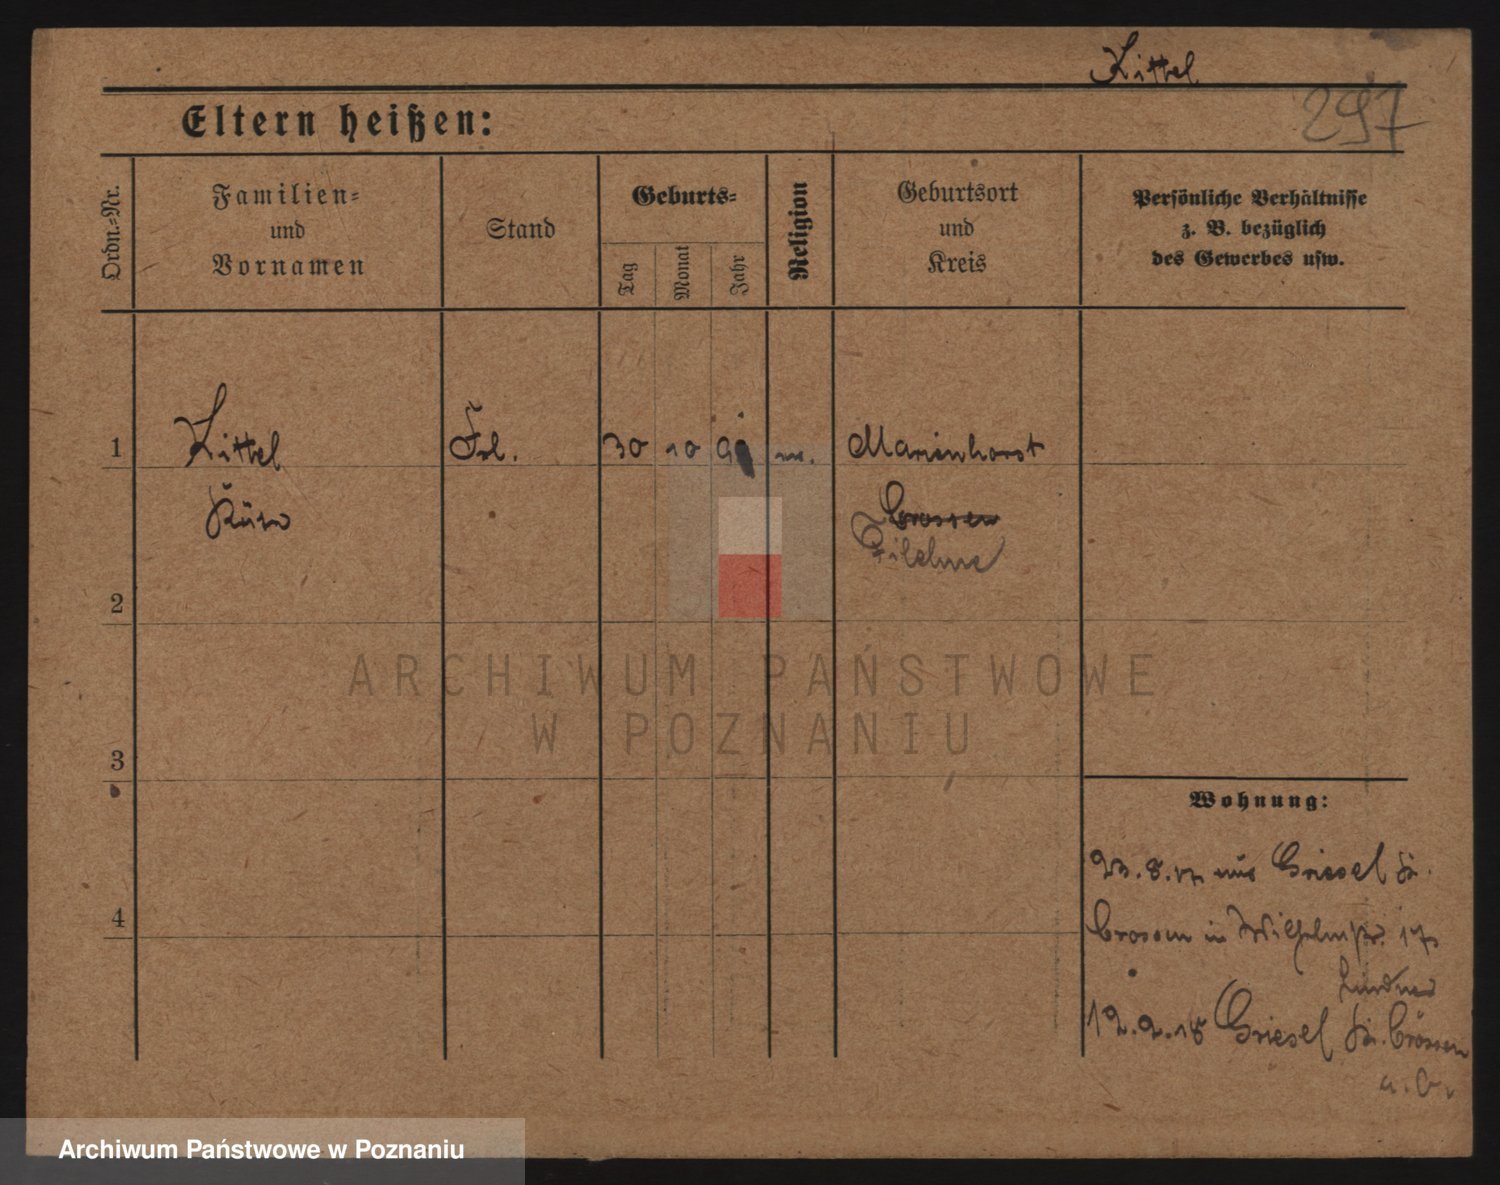 Kittel
297
Eltern heißen:
Ordn.-Nr.
Familien-
und
Vornamen
Stand
Geburts-
Tag
Monat
Jahr
Religion
Geburtsort
und
Kreis
Persönliche Verhältnisse
z. B. bezüglich
des Gewerbes usw.
1
Kittel
Frl.
30
10
Marienhorst
Crossen
Filehne
2
3
4
Wohnung:
23.8.17 aus Griesel Kr.
Crossen in Wilhelmstr. 17
Lindner
12.2.18 Griesel Kr. Crossen
ARCHIWUM PAŃSTWOWE
W POZNANIU
Archiwum Państwowe w Poznaniu